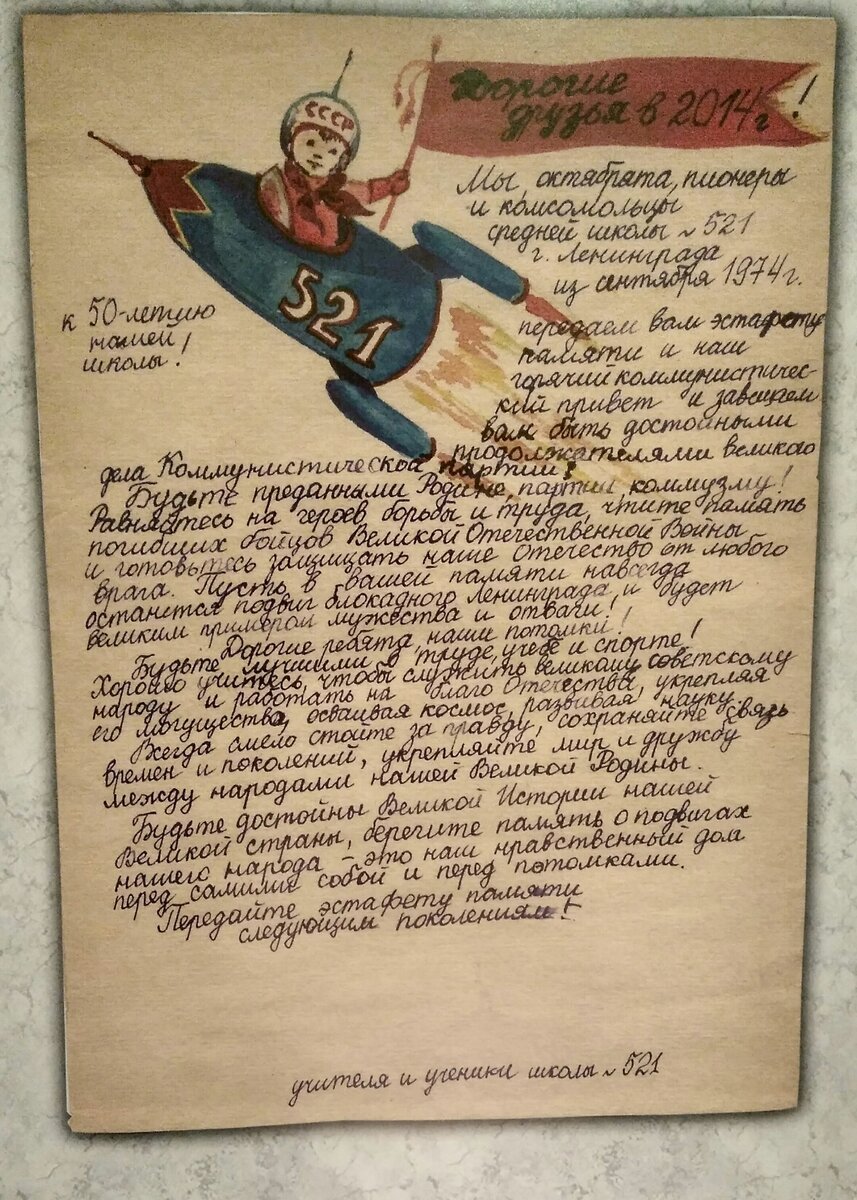 Дорогие
друзья в 2014г!
СССР
521
Мы, октябрята, пионеры
и комсомольцы
средней школы № 521
г. Ленинграда
из сентября 1974г.
к 50-летию
нашей
школы!
передаем вам эстафету
памяти и наш
горячий коммунистичес-
кий привет и завещаем
вам быть достойными
продолжателями великого
дела Коммунистической партии!
Будьте преданными Родине, партии, коммузму!
Равняйтесь на героев борьбы и труда, чтите память
погибших бойцов Великой Отечественной Войны
и готовьтесь защищать наше Отечество от любого
врага. Пусть в вашей памяти навсегда
останется подвиг блокадного Ленинграда и будет
великим примером мужества и отваги!
Дорогие ребята, наши потомки!
Будьте лучшими в труде, учебе и спорте!
Хорошо учитесь, чтобы служить великому советскому
народу и работать на благо Отечества, укрепляя
его могущество, осваивая космос, развивая науку.
Всегда смело стойте за правду, сохраняйте связь
времен и поколений, укрепляйте мир и дружбу
между народами нашей Великой Родины.
Будьте достойны Великой Истории нашей
Великой страны, берегите память о подвигах
нашего народа – это наш нравственный долг
перед самими собой и перед потомками.
Передайте эстафету памяти
следующим поколениям!
учителя и ученики школы № 521